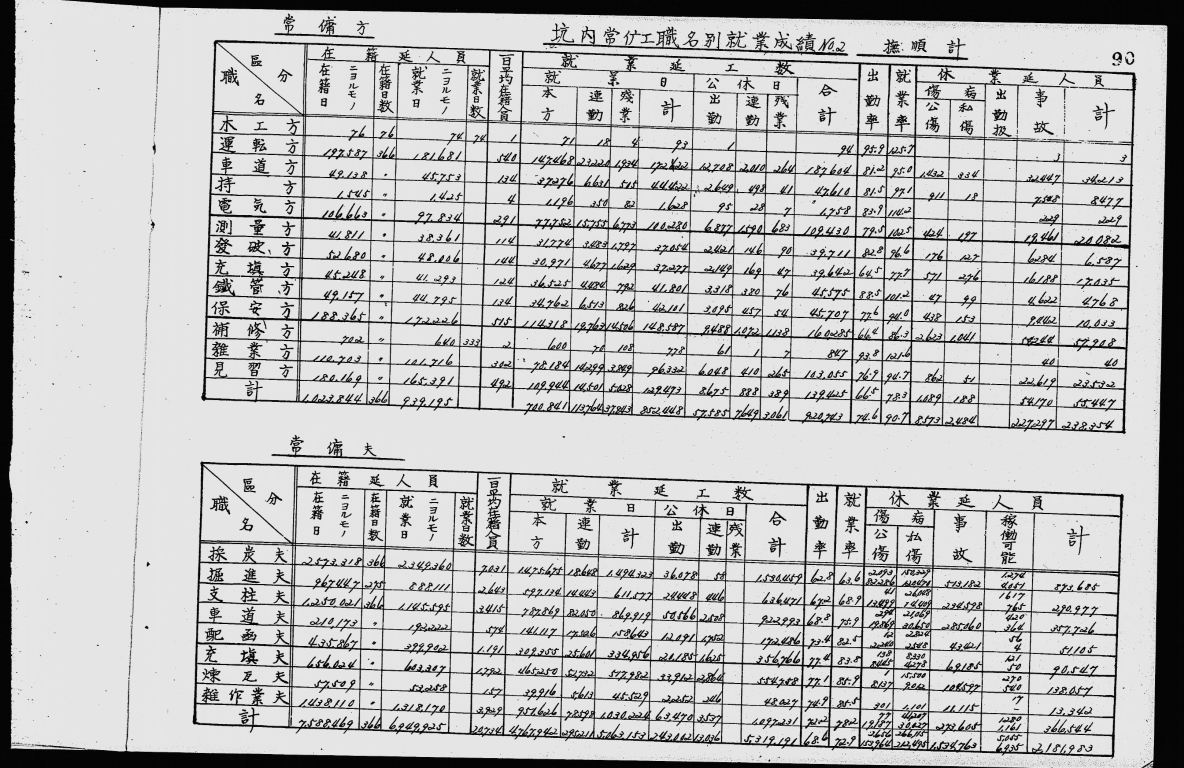 常傭方
坑内常仂工職名別就業成績No.2 撫順計
90
区分 職名
在籍延人員
在籍日ニヨルモノ 在籍日数 就業日ニヨルモノ 就業日数
一日平均在籍人員
就業延工数
就業日 公休日 合計
本方 連勤 残業 計 出勤 連勤 残業
出勤率 就業率
休業延人員
傷病 公傷 私傷 出勤扱 事故 計
木工方 76 76 74 74 1 71 18 4 93 1 94 95.9 125.7 3 3
運転方 197,587 366 181,681 540 147,468 23,220 1,934 172,622 12,708 2,010 264 187,604 81.2 95.0 1,432 334 32,447 34,213
車道方 49,138 〃 45,753 134 37,276 6,631 515 44,422 2,649 498 41 47,610 81.5 97.1 911 18 7,548 8,477
持方 1,545 〃 1,425 4 1,196 350 82 1,628 95 28 7 1,758 83.9 114.2 229 229
電気方 106,663 〃 97,834 291 77,752 15,755 6,773 100,280 6,877 1,590 683 109,430 79.5 102.5 424 197 19,461 20,082
測量方 41,811 〃 38,361 114 31,774 3,483 1,797 37,054 2,421 146 90 39,711 82.8 96.6 176 127 6,284 6,587
発破方 52,680 〃 48,006 144 30,971 4,677 1,629 37,277 2,149 169 47 39,642 64.5 77.7 571 276 16,188 17,035
充填方 45,248 〃 41,293 124 36,525 4,484 792 41,801 3,318 380 76 45,575 88.5 101.2 47 99 4,622 4,768
鐵管方 49,157 〃 44,795 134 34,762 6,513 826 42,101 3,095 457 54 45,707 77.6 94.0 438 153 9,442 10,033
保安方 188,365 〃 172,226 515 114,318 19,763 14,506 148,587 9,488 1,072 1,138 160,285 66.4 86.3 2,623 1,041 54,244 57,908
補修方 702 〃 640 333 2 600 70 108 778 61 1 7 847 93.8 121.6 40 40
雑業方 110,703 〃 101,716 302 78,184 14,299 3,849 96,332 6,048 410 265 103,055 76.9 94.7 862 51 22,619 23,532
見習方 180,169 〃 165,391 492 109,944 14,501 5,028 129,473 8,675 888 389 139,425 66.5 78.3 1,089 188 54,170 55,447
計 1,023,844 366 939,195 700,841 113,764 37,843 852,448 57,585 7,649 3,061 920,743 74.6 90.7 8,573 2,484 227,297 238,354
常傭夫
区分 職名
在籍延人員
在籍日ニヨルモノ 在籍日数 就業日ニヨルモノ 就業日数
一日平均在籍人員
就業延工数
就業日 公休日 合計
本方 連勤 計 出勤 連勤 残業
出勤率 就業率
休業延人員
傷病 公傷 私傷 事故 稼働可能 計
採炭夫 2,573,318 366 2,349,360 7,031 1,475,675 18,648 1,494,323 36,078 58 1,530,459 62.8 63.6 513,182 873,685
掘進夫 967,447 275 888,111 2,643 597,134 14,443 611,577 24,448 446 636,471 67.2 68.9 234,598 290,977
支柱夫 1,250,021 366 1,145,595 3,415 787,869 82,050 869,919 50,566 2,508 922,993 68.8 75.9 285,360 357,726
車道夫 210,173 〃 192,222 574 141,117 17,526 158,643 12,091 1,752 172,486 73.4 82.5 43,421 51,105
配函夫 435,867 〃 399,902 1,191 309,355 25,601 334,956 20,185 1,625 356,766 77.4 83.8 69,185 90,547
充填夫 656,024 〃 603,307 1,792 465,250 52,732 517,982 33,912 2,864 554,758 77.1 85.9 104,597 138,057
煉瓦夫 57,509 〃 53,258 157 39,916 5,613 45,529 2,252 246 48,027 74.9 85.5 301 1,101 13,115 17 13,342
雑作業夫 1,438,110 〃 1,318,170 3,929 951,626 78,598 1,030,224 63,470 3,537 1,097,231 72.2 78.2 272,605 366,544
計 7,588,469 366 6,949,925 20,734 4,767,942 295,211 5,063,153 243,002 13,036 5,319,191 68.6 72.9 153,964 212,495 1,534,763 6,935 2,181,983